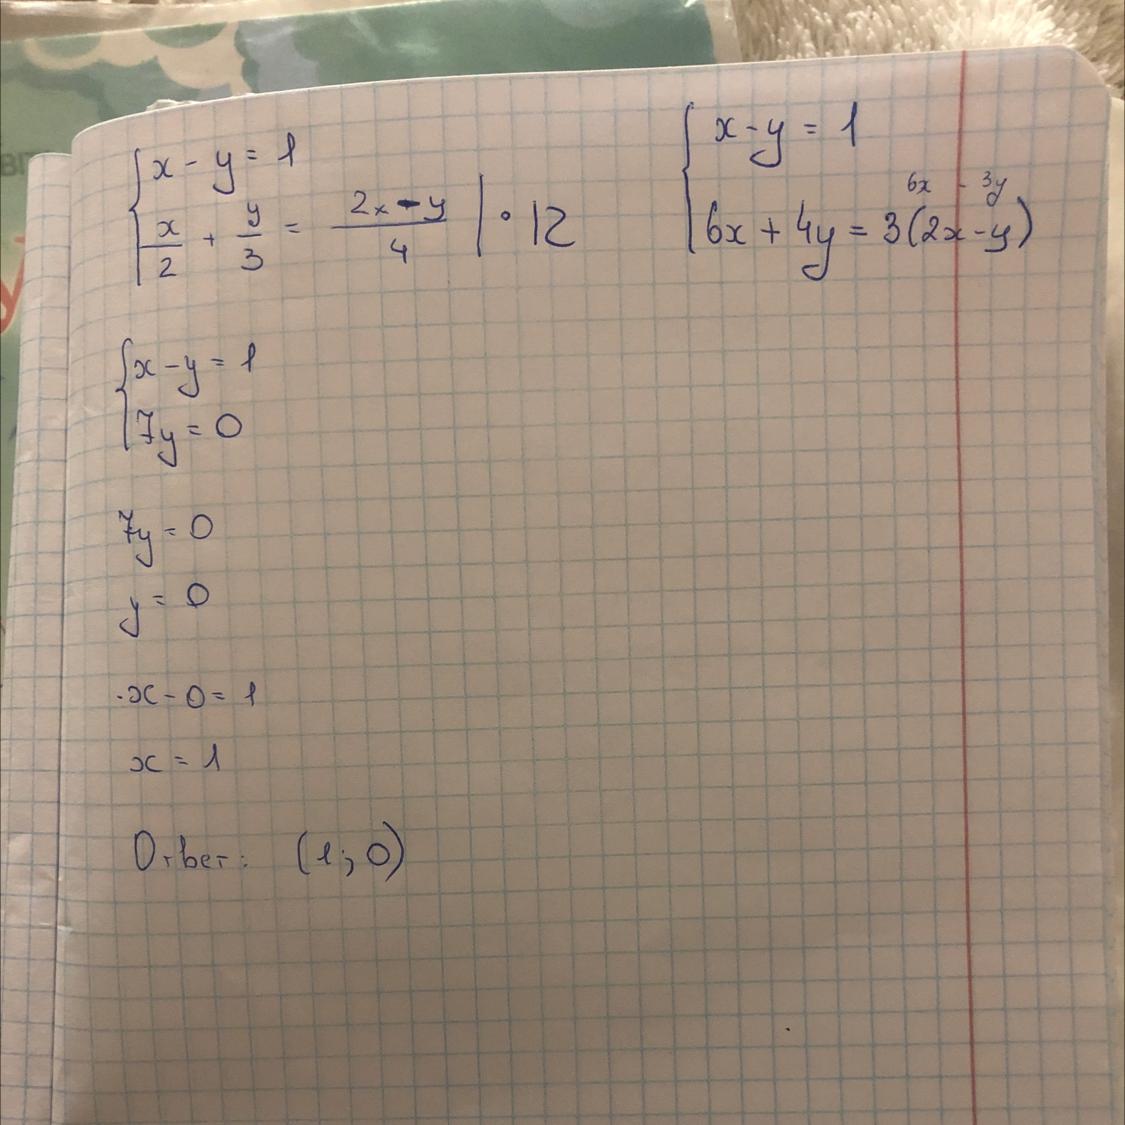 x - y = 1
x/2 + y/3 = (2x - y)/4 | · 12
x - y = 1
6x - 3y
6x + 4y = 3(2x - y)
x - y = 1
7y = 0
7y = 0
y = 0
x - 0 = 1
x = 1
Ответ: (1; 0)